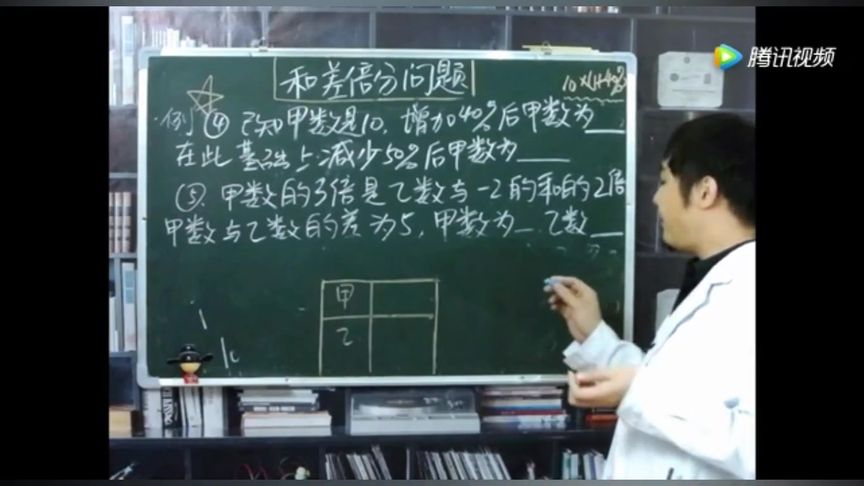 腾讯视频
和差倍分问题
10×(1+40%)
例④已知甲数是10,增加40%后甲数为__
在此基础上减少50%后甲数为__
⑤.甲数的3倍是乙数与-2的和的2倍
甲数与乙数的差为5,甲数为__乙数__
甲
乙